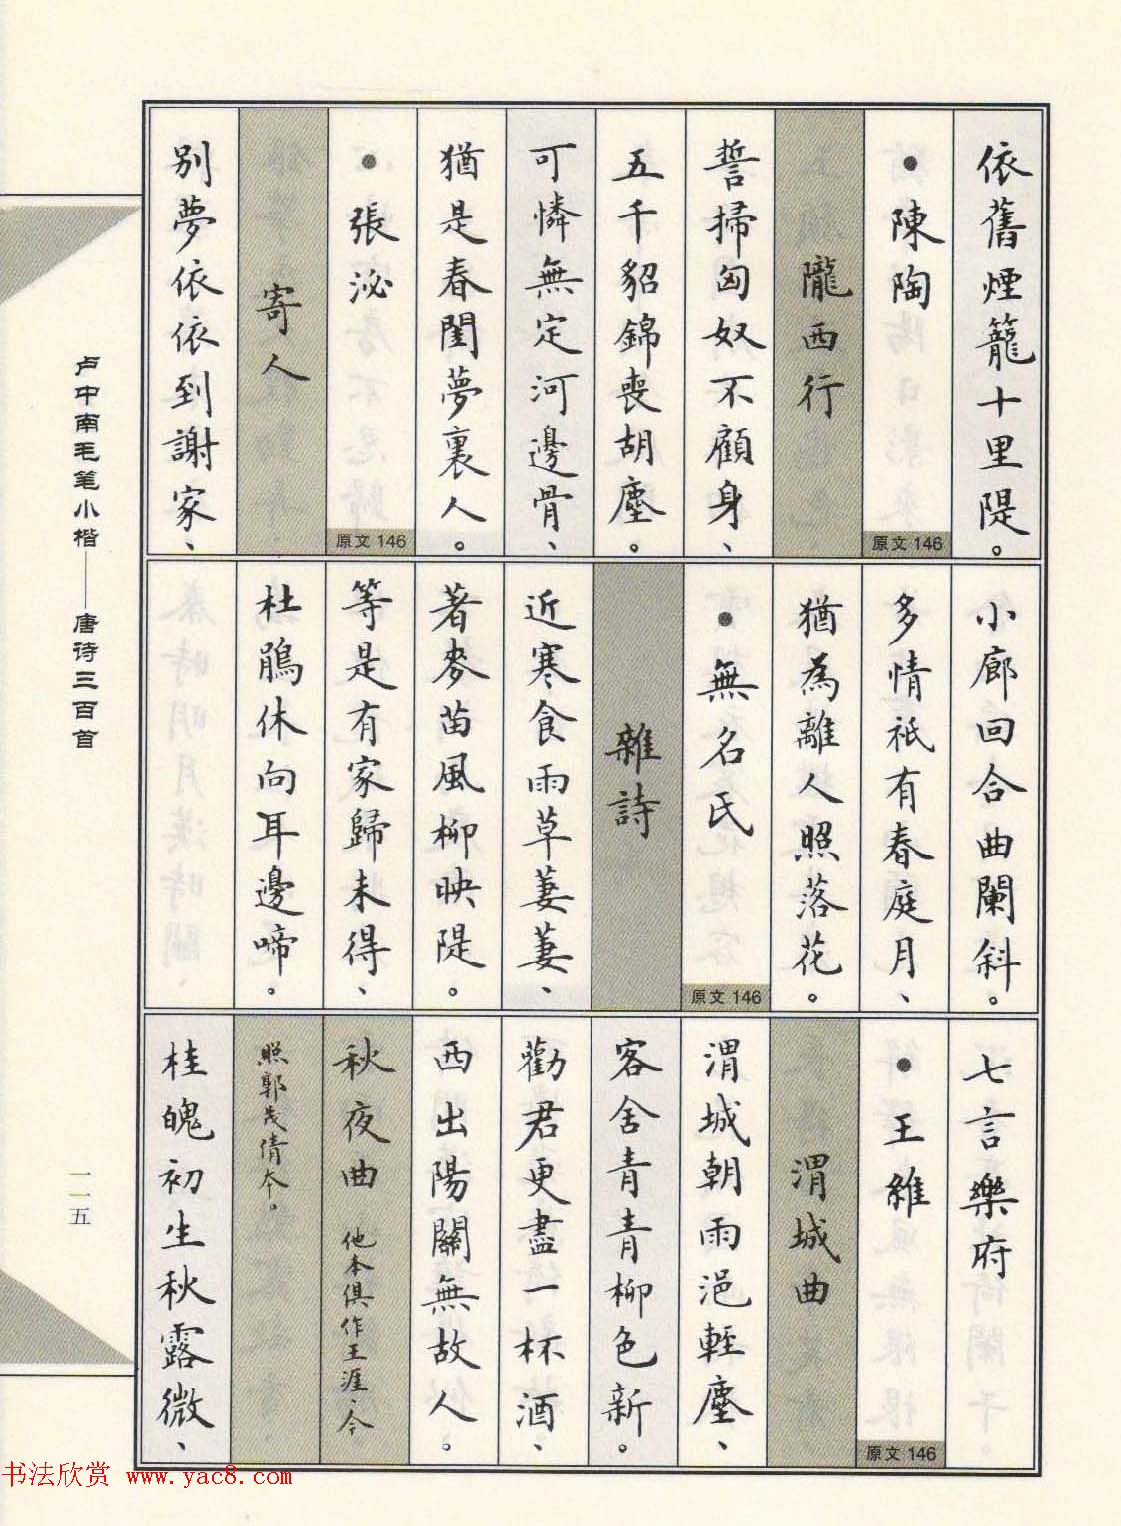 依舊煙籠十里隄。
•陳陶
原文 146
隴西行
誓掃匈奴不顧身、
五千貂錦喪胡塵。
可憐無定河邊骨、
猶是春閨夢裏人。
•張泌
原文 146
寄人
別夢依依到謝家、
小廊回合曲闌斜。
多情祇有春庭月、
猶為離人照落花。
•無名氏
原文 146
雜詩
近寒食雨草萋萋、
著麥苗風柳映隄。
等是有家歸未得、
杜鵑休向耳邊啼。
七言樂府
•王維
原文 146
渭城曲
渭城朝雨浥輕塵、
客舍青青柳色新。
勸君更盡一杯酒、
西出陽關無故人。
秋夜曲 他本俱作王涯、今
照郭茂倩本。
桂魄初生秋露微、
卢中南毛笔小楷——唐诗三百首
一一五
书法欣赏 www.yac8.com